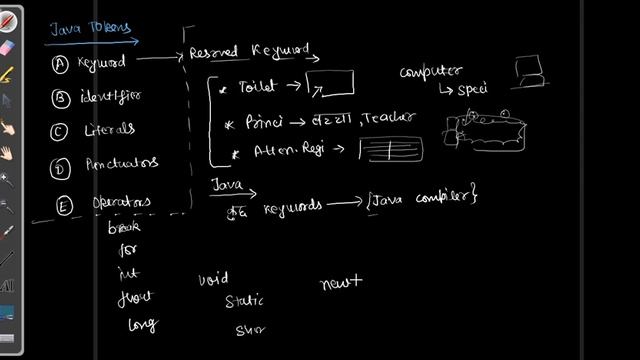 Java Tokens
A Keyword
B identifier
C Literals
D Punctuators
E Operators
Reserved Keyword
* Toilet
* Princi → , Teacher
* Atten. Regi
computer
↳ speci
Java
Keywords → {Java compiler}
break
for
int
float
long
void
static
shor
new